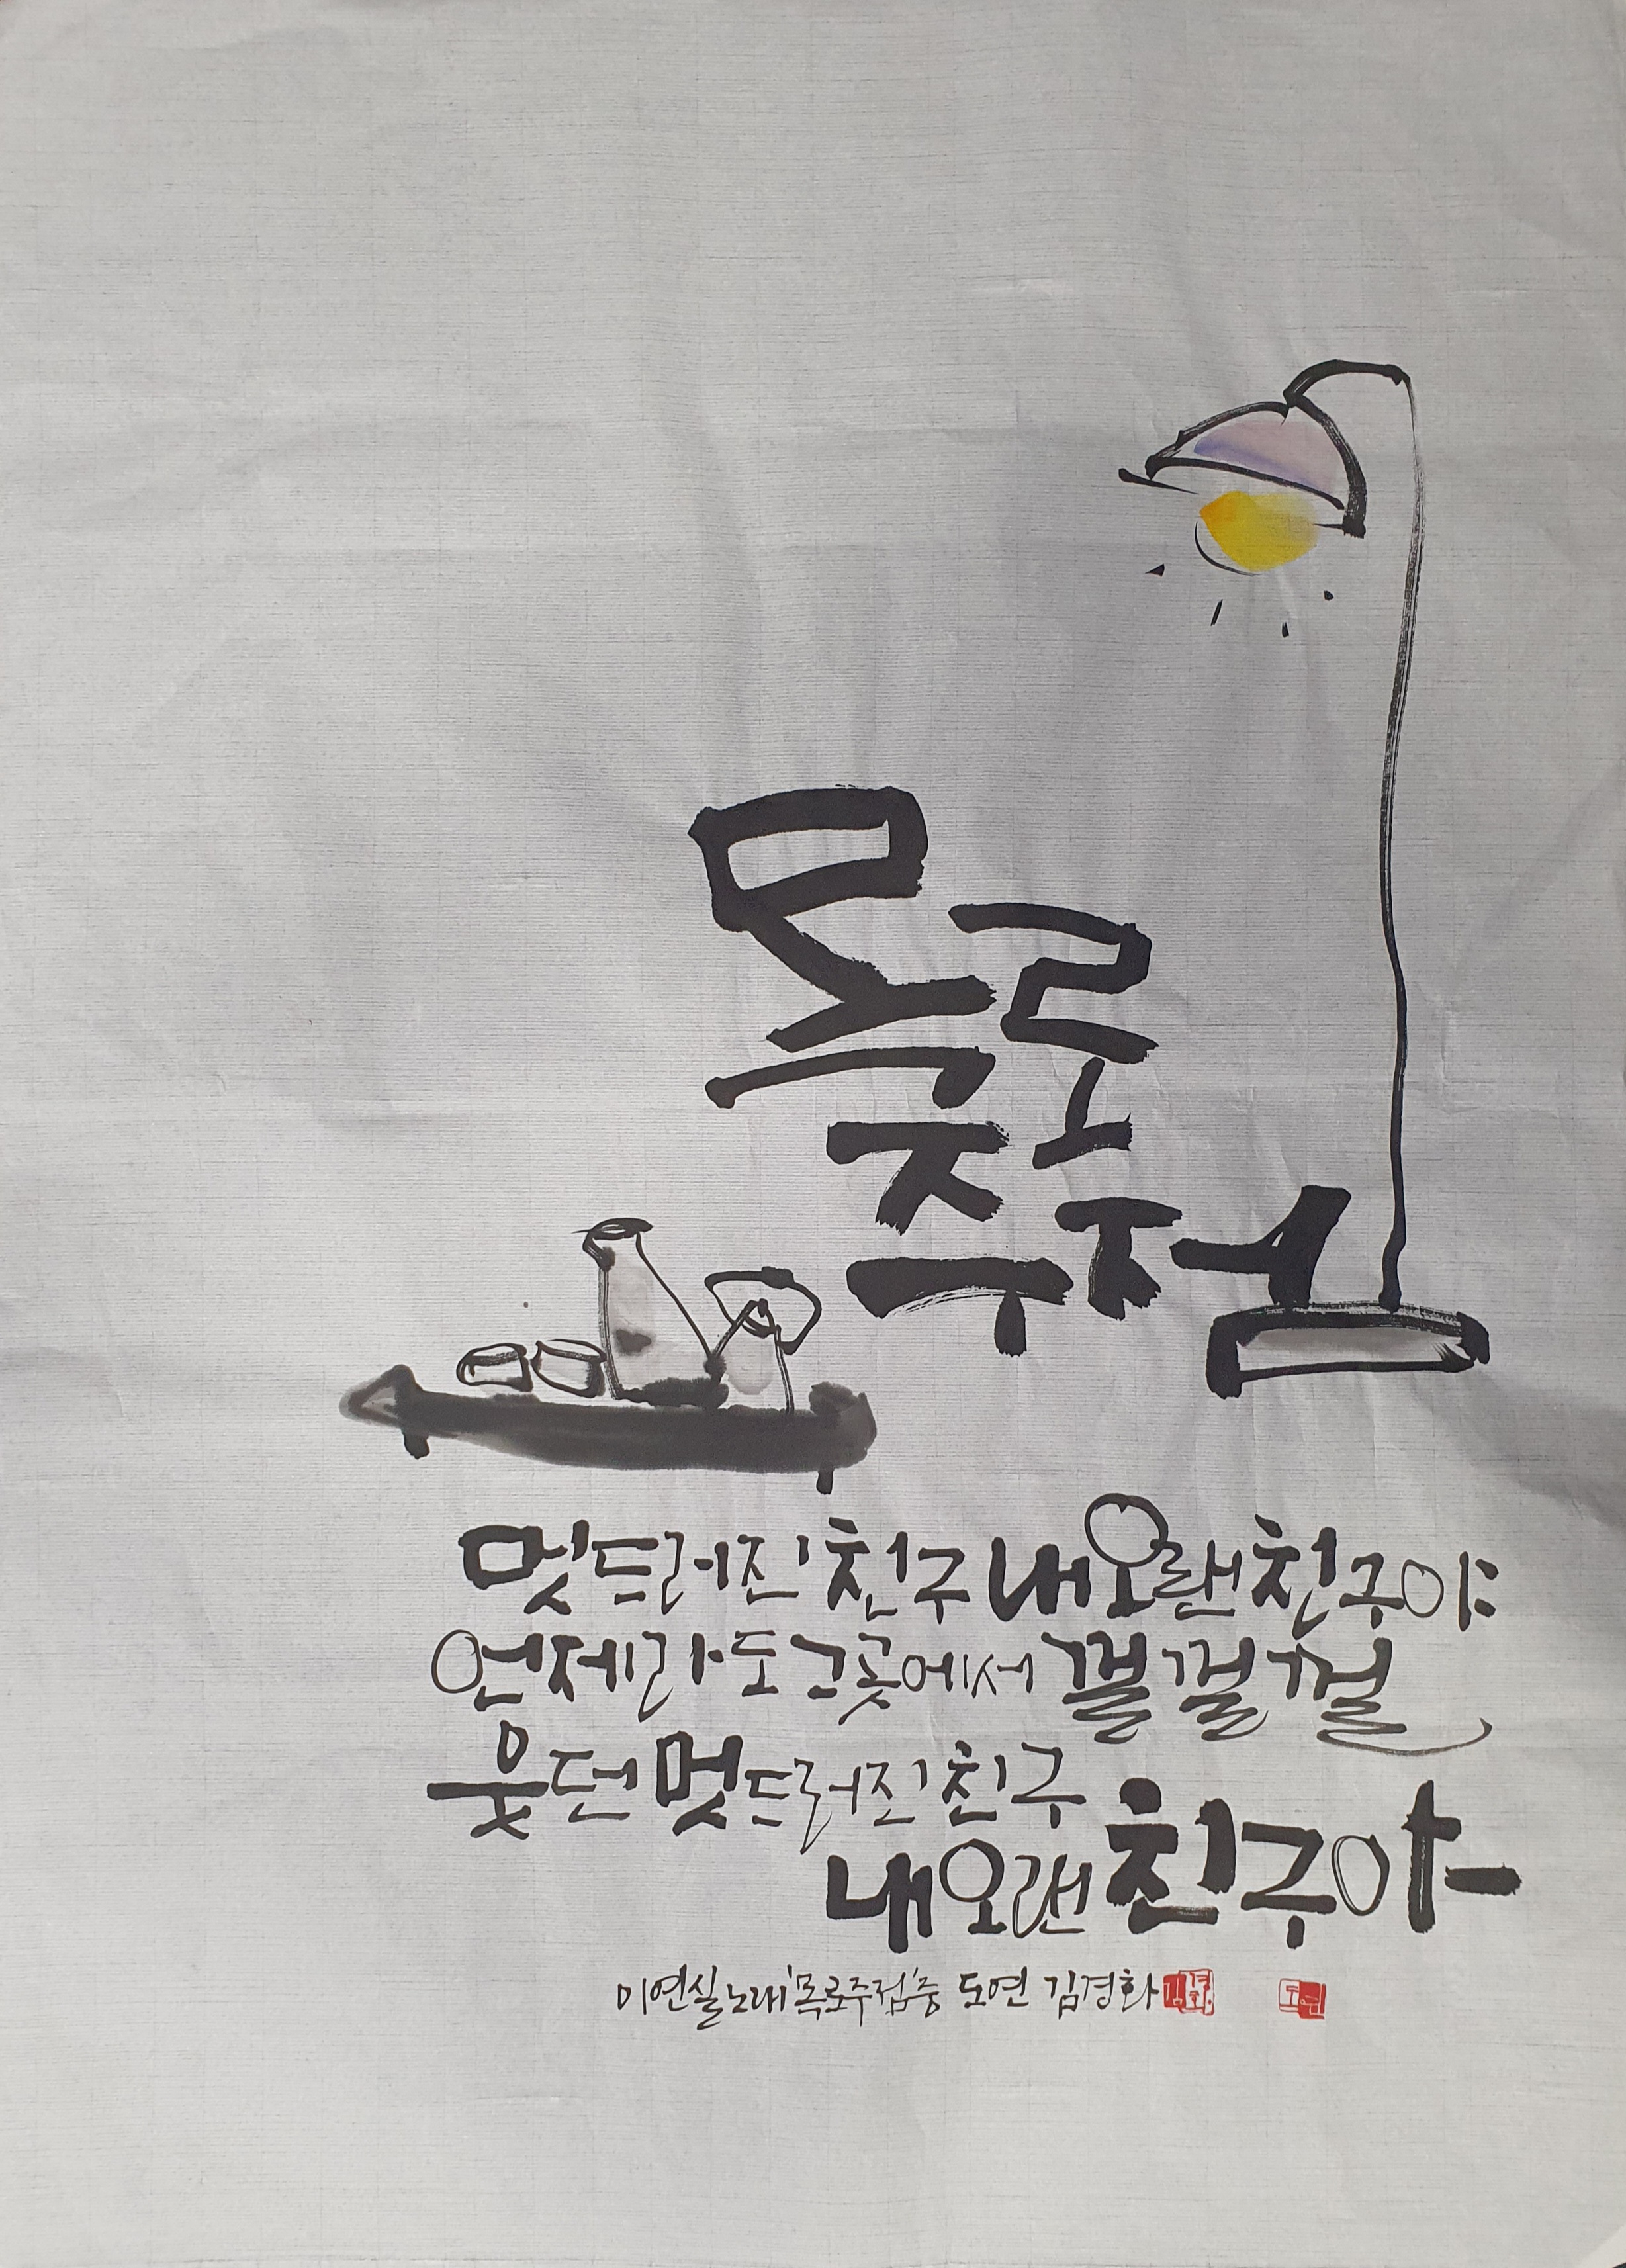 목로
주점
멋드러진 친구 내 오랜 친구야
언제라도 그곳에서 껄껄껄
웃던 멋드러진 친구
내 오랜 친구야
이연실 노래 '목로주점' 중 도연 김경화
김경화
도연